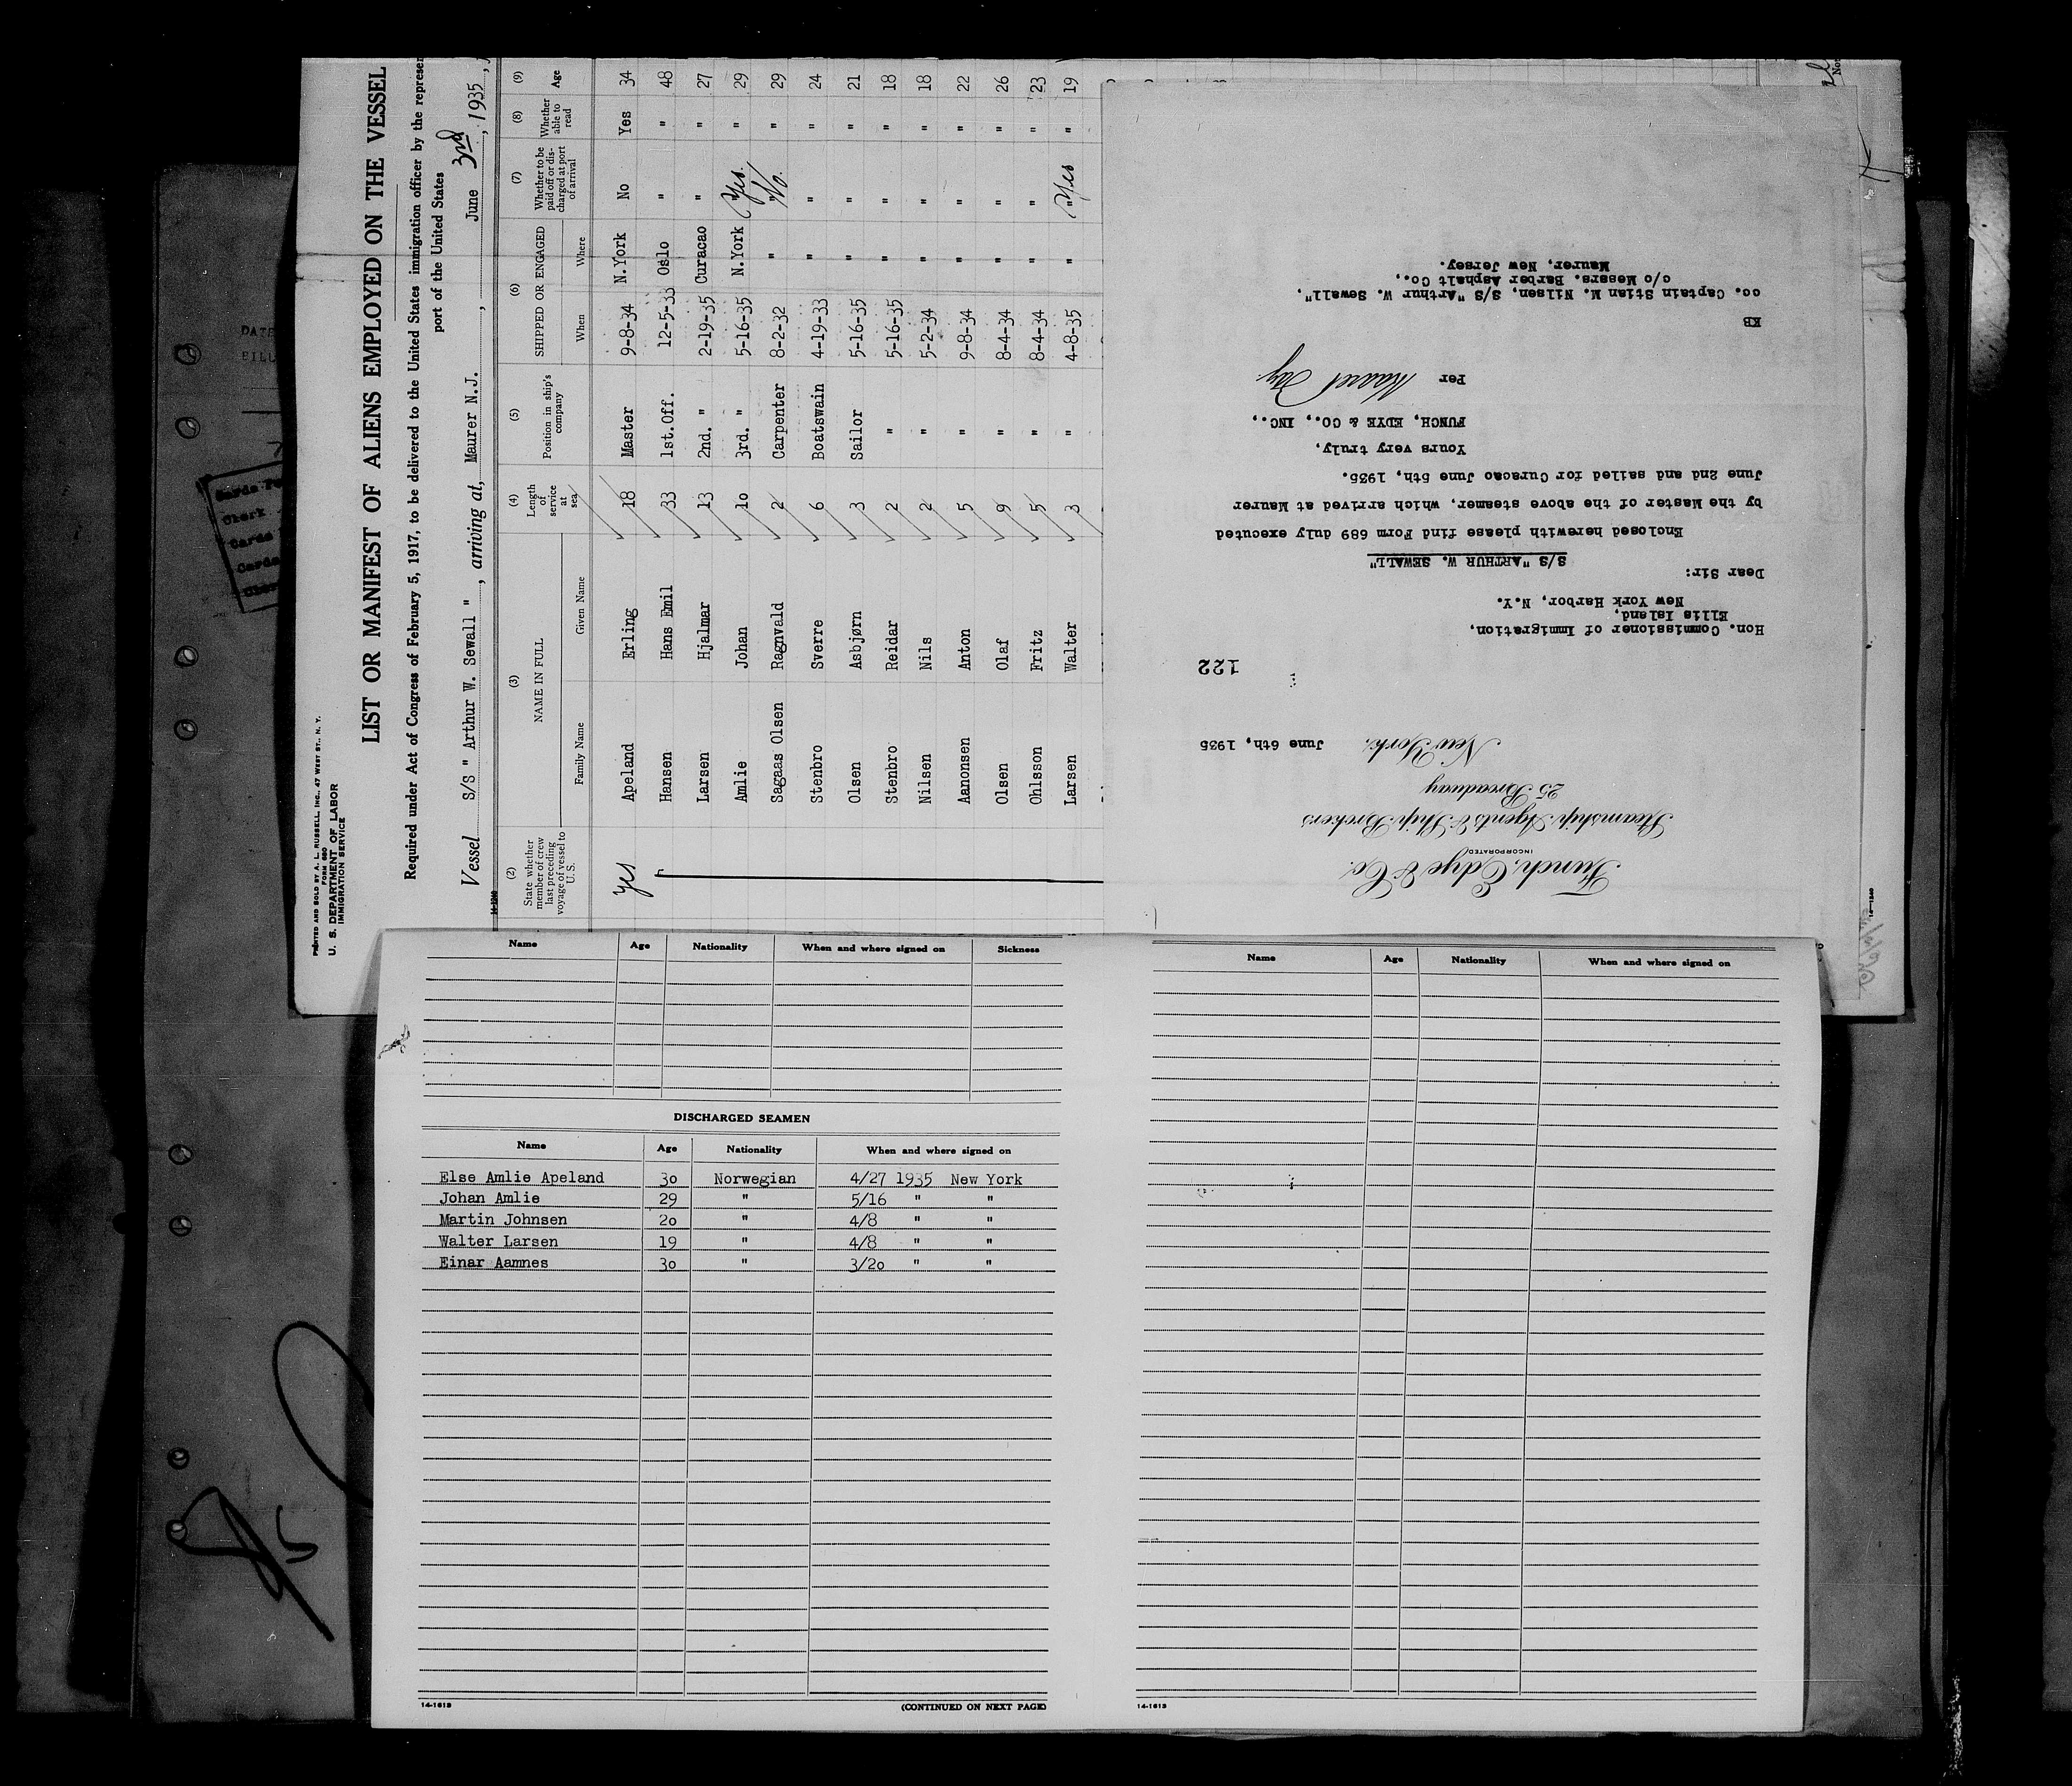 PRINTED AND SOLD BY A. L. RUSSELL, INC., 47 WEST ST., N. Y.
FORM 680
U. S. DEPARTMENT OF LABOR
IMMIGRATION SERVICE
LIST OR MANIFEST OF ALIENS EMPLOYED ON THE VESSEL
Required under Act of Congress of February 5, 1917, to be delivered to the United States immigration officer by the represen
port of the United States
Vessel S/S " Arthur W. Sewall ", arriving at, Maurer N.J., June 3rd, 1935,
14-1240
(2) (3) (4) (5) (6) (7) (8) (9)
State whether member of crew last preceding voyage of vessel to U. S. NAME IN FULL Length of service at sea Position in ship's company SHIPPED OR ENGAGED Whether to be paid off or discharged at port of arrival Whether able to read Age
Family Name Given Name When Where
Yes Apeland Erling 18 Master 9-8-34 N.York No Yes 34
Hansen Hans Emil 33 1st.Off. 12-5-33 Oslo " " 48
Larsen Hjalmar 13 2nd. " 2-19-35 Curacao " " 27
Amlie Johan 1o 3rd. " 5-16-35 N.York Yes. " 29
Sagaas Olsen Ragnvald 2 Carpenter 8-2-32 " No. " 29
Stenbro Sverre 6 Boatswain 4-19-33 " " " 24
Olsen Asbjørn 3 Sailor 5-16-35 " " " 21
Stenbro Reidar 2 " 5-16-35 " " " 18
Nilsen Nils 2 " 5-2-34 " " " 18
Aanonsen Anton 5 " 9-8-34 " " " 22
Olsen Olaf 9 " 8-4-34 " " " 26
Ohlsson Fritz 5 " 8-4-34 " " " 23
Larsen Walter 3 " 4-8-35 " Yes " 19
Funch, Edye & Co.
INCORPORATED
Steamship Agents & Ship Brokers
25 Broadway
New York, June 6th, 1935
122
Hon. Commissioner of Immigration,
Ellis Island,
New York Harbor, N.Y.
Dear Sir:
S/S "ARTHUR W. SEWALL"
Enclosed herewith please find Form 689 duly executed
by the Master of the above steamer, which arrived at Maurer
June 2nd and sailed for Curacao June 5th, 1935.
Yours very truly,
FUNCH, EDYE & CO., INC.,
Per
KB
cc. Captain Stian M. Nilsen, S/S "Arthur W. Sewall",
c/o Messrs. Barber Asphalt Co.,
Maurer, New Jersey.
Name Age Nationality When and where signed on Sickness
DISCHARGED SEAMEN
Name Age Nationality When and where signed on
Else Amlie Apeland 3o Norwegian 4/27 1935 New York
Johan Amlie 29 " 5/16 " "
Martin Johnsen 2o " 4/8 " "
Walter Larsen 19 " 4/8 " "
Einar Aamnes 3o " 3/2o " "
14-1613
(CONTINUED ON NEXT PAGE)
Name Age Nationality When and where signed on
14-1613